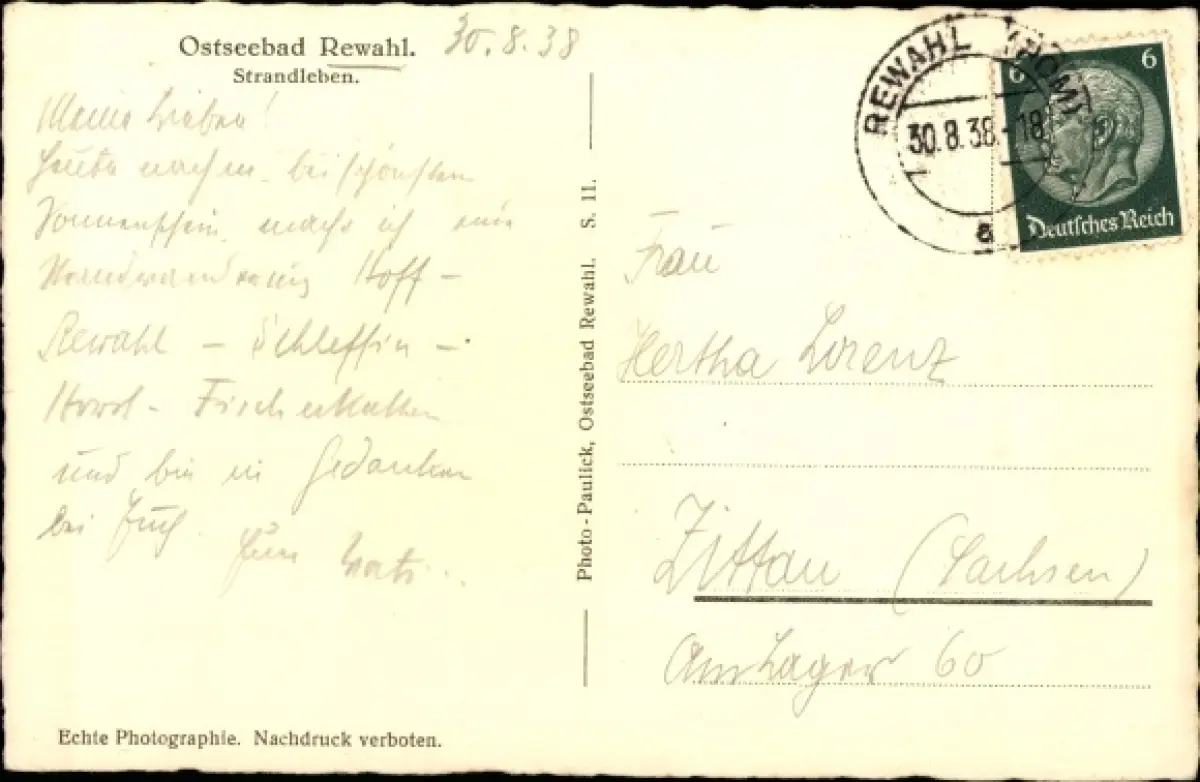 Ostseebad Rewahl. 30.8.38
Strandleben.
Meine Lieben!
Heute bei schönstem
Sonnenschein mache ich eine
Strandwanderung Hoff -
Rewahl - Schleffin -
Horst - Fischerkathen
und bin in Gedanken
bei Euch.
Euer
Photo-Paulick, Ostseebad Rewahl. S. 11.
Echte Photographie. Nachdruck verboten.
REWAHL (POM)
30.8.38.-18
a
6 6
Deutsches Reich
Frau
Hertha Lorenz
Zittau (Sachsen)
Am Lager 60